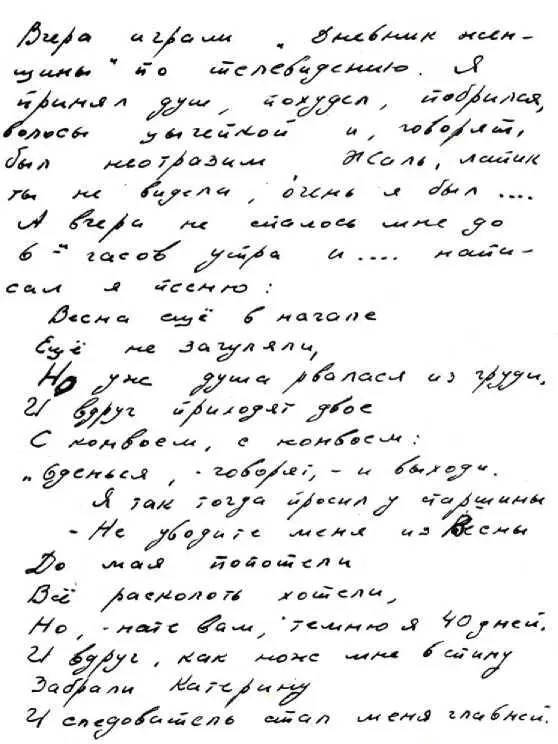 Вчера играли „Дневник жен-
щины" по телевидению. Я
принял душ, похудел, побрился,
волосы уычейкой и, говорят,
был неотразим Жаль, лапик
ты не видела, очень я был ....
А вчера не спалось мне до
6-ти часов утра и .... напи-
сал я песню:
Весна ещё в начале
Ещё не загуляли,
Но уж душа рвалася из груди,
И вдруг приходят двое
С конвоем, с конвоем:
„Оденься, - говорят, - и выходи.
Я так тогда просил у старшины
- Не уводите меня из Весны
До мая попотели
Всё расколоть хотели,
Но, - нате вам, темню я 40 дней.
И вдруг, как нож мне в спину
Забрали Катерину
И следователь стал меня главней.